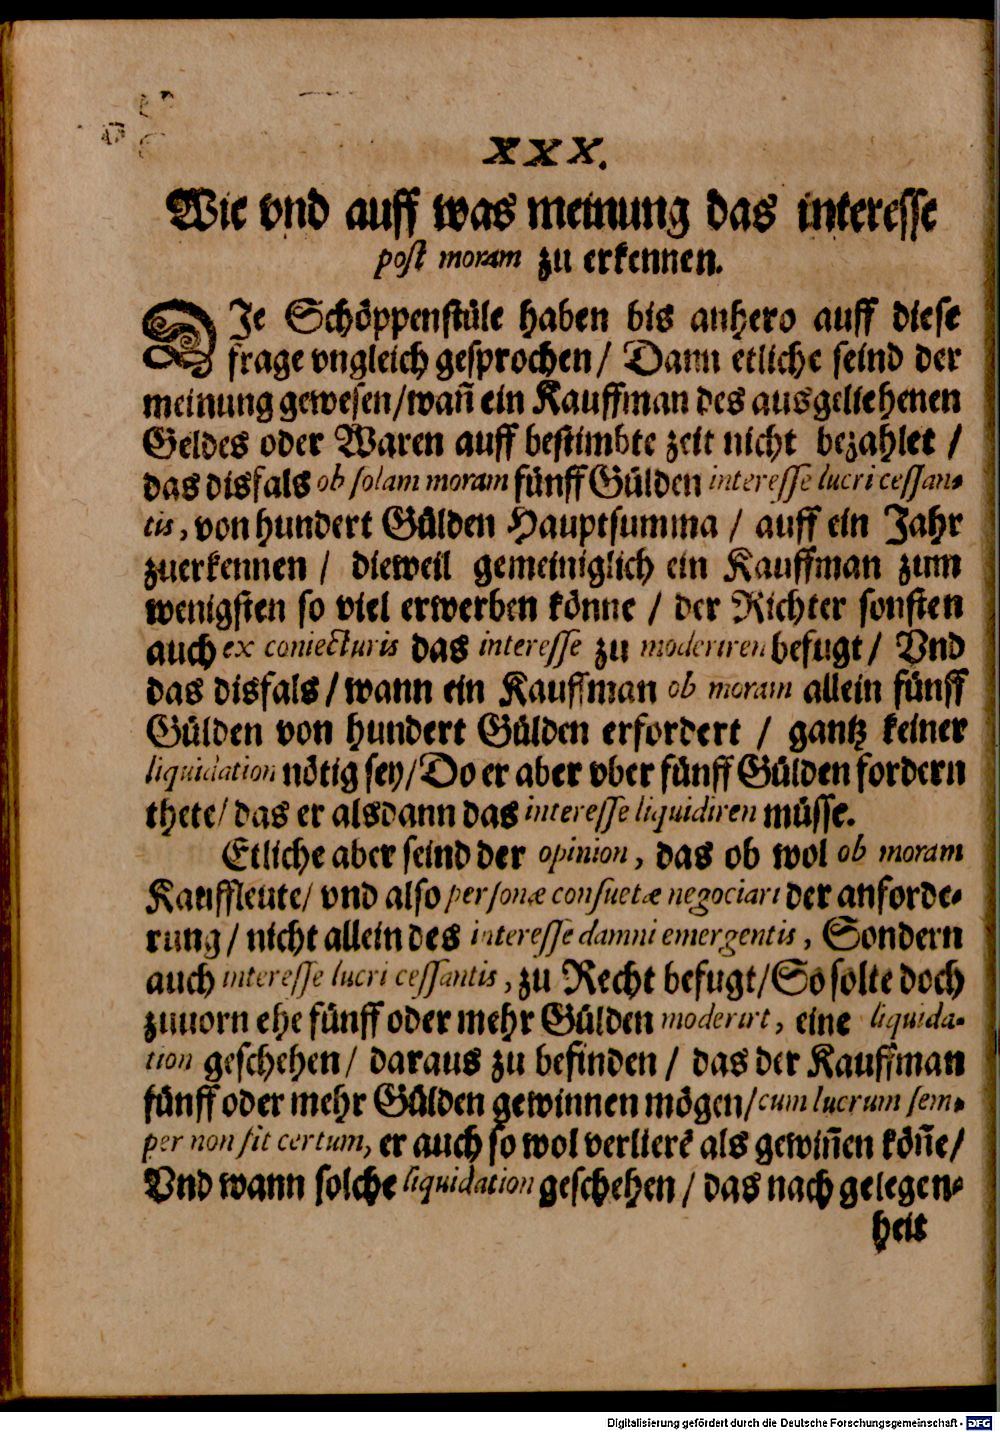 XXX.
Wie vnd auff was meinung das interesse
post moram zu erkennen.
DIe Schöppenstüle haben bis anhero auff diese
frage vngleich gesprochen/ Dann etliche seind der
meinung gewesen/wañ ein Kauffman des ausgeliehenen
Geldes oder Waren auff bestimbte zeit nicht bezahlet /
das disfals ob solam moram fünff Gülden interesse lucri cessan-
tis, von hundert Gülden Hauptsumma / auff ein Jahr
zuerkennen / dieweil gemeiniglich ein Kauffman zum
wenigsten so viel erwerben könne / der Richter sonsten
auch ex coniecturis das interesse zu moderiren befugt / Vnd
das disfals / wann ein Kauffman ob moram allein fünff
Gülden von hundert Gülden erfordert / gantz keiner
liquidation nötig sey/Do er aber vber fünff Gülden fordern
thete/ das er alsdann das interesse liquidiren müsse.
Etliche aber seind der opinion, das ob wol ob moram
Kauffleute/ vnd also personæ consuetæ negociari der anforde-
rung / nicht allein des interesse damni emergentis, Sondern
auch interesse lucri cessantis, zu Recht befugt/So solte doch
zuuorn ehe fünff oder mehr Gülden moderirt, eine liquida-
tion geschehen/ daraus zu befinden / das der Kauffman
fünff oder mehr Gülden gewinnen mögen/cum lucrum sem-
per non sit certum, er auch so wol verlierē als gewiñen köñe/
Vnd wann solche liquidation geschehen / das nach gelegen-
heit
Digitalisierung gefördert durch die Deutsche Forschungsgemeinschaft - DFG